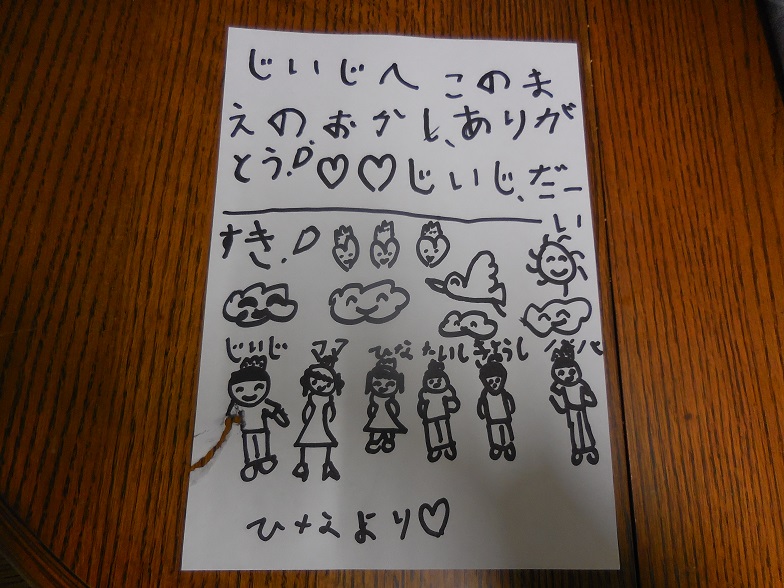 じいじへ このま
えのおかし、ありが
とう!♡♡じいじ、だーい
すき!
じいじ ママ ひな たいし きょうし パパ
ひなより♡